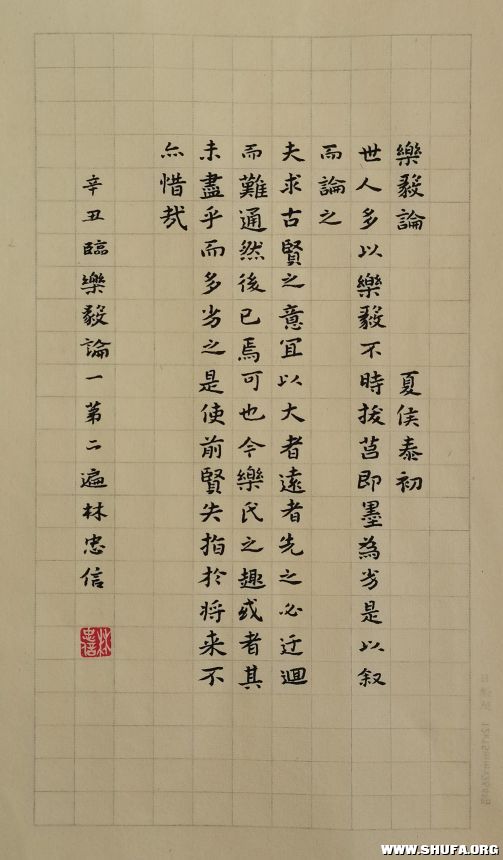 樂毅論 夏侯泰初
世人多以樂毅不時拔莒即墨為劣是以叙
而論之
夫求古賢之意宜以大者遠者先之必迂迴
而難通然後已焉可也今樂氏之趣或者其
未盡乎而多劣之是使前賢失指於将来不
亦惜哉
辛丑臨樂毅論一第二遍林忠信
林忠信
WWW.SHUFA.ORG